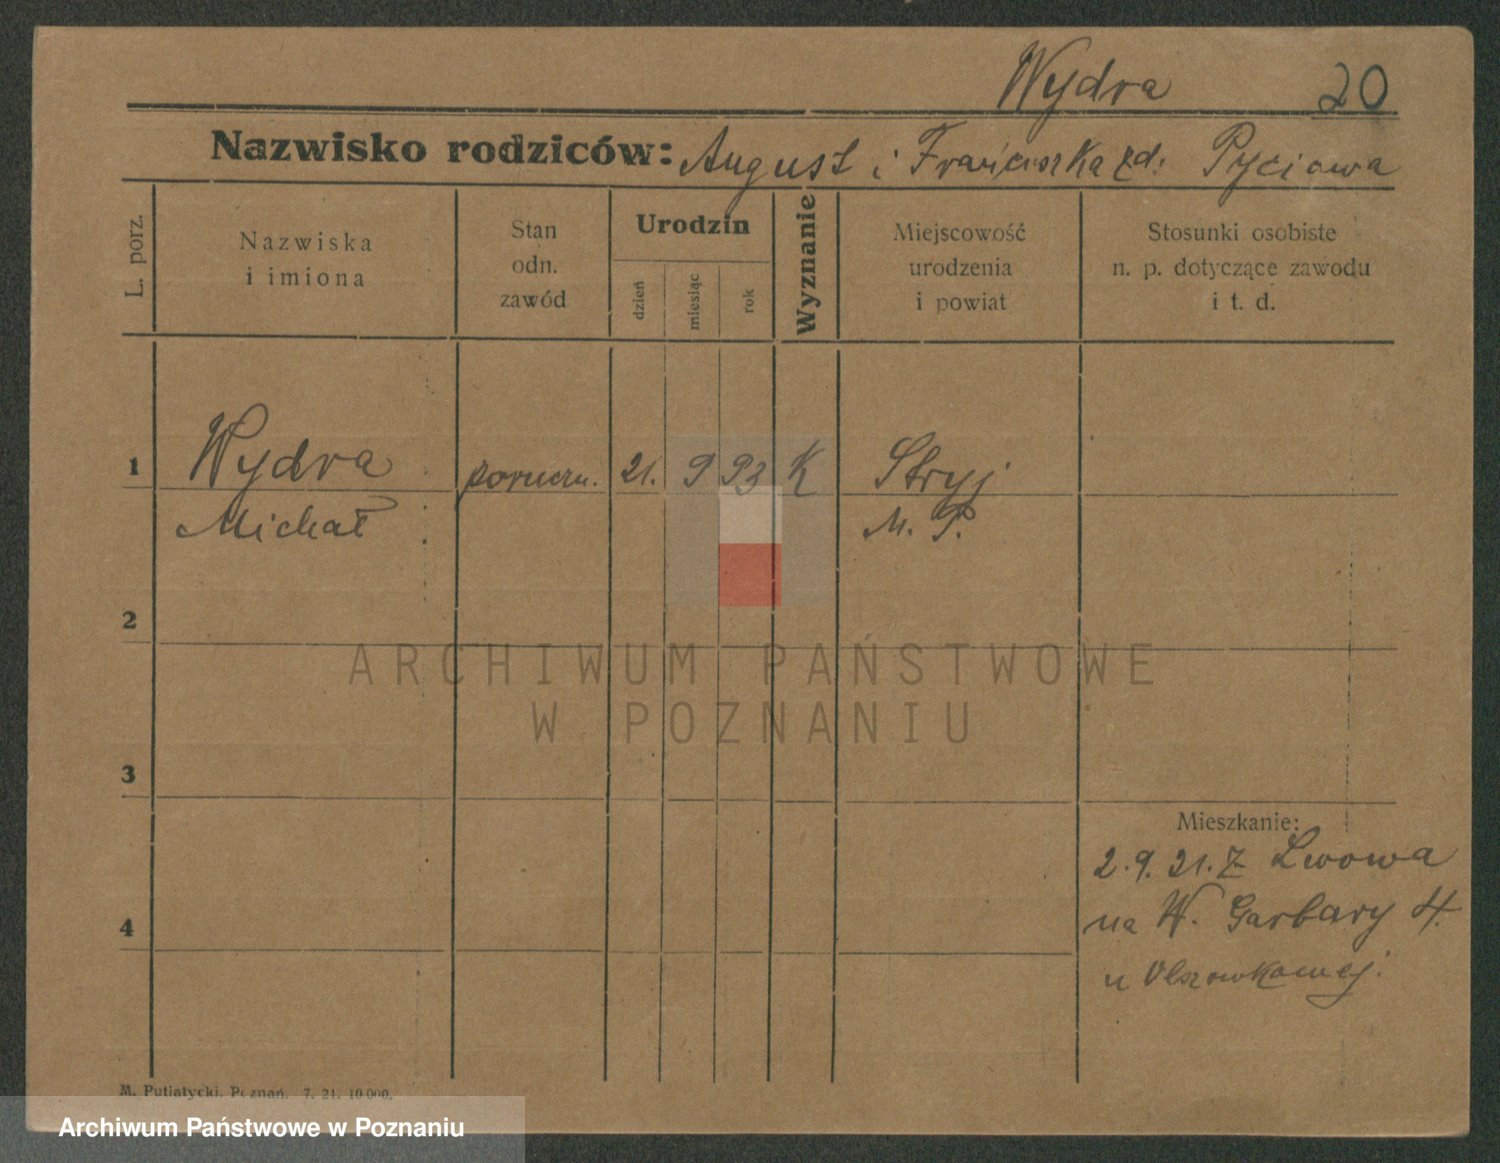 Wydra 20
Nazwisko rodziców: August i Franciszka zd. Pyciowa
L. porz.
Nazwiska
i imiona
Stan
odn.
zawód
Urodzin
dzień
miesiąc
rok
Wyznanie
Miejscowość
urodzenia
i powiat
Stosunki osobiste
n. p. dotyczące zawodu
i t. d.
1 Wydra poruczn. 21. 9 93 K Stryj
Michał M. P.
2
3
Mieszkanie:
2.9.21. Z Lwowa
4 na W. Garbary 4.
u
M. Putiatycki, Poznań. 7. 21. 10 000.
ARCHIWUM PAŃSTWOWE
W POZNANIU
Archiwum Państwowe w Poznaniu